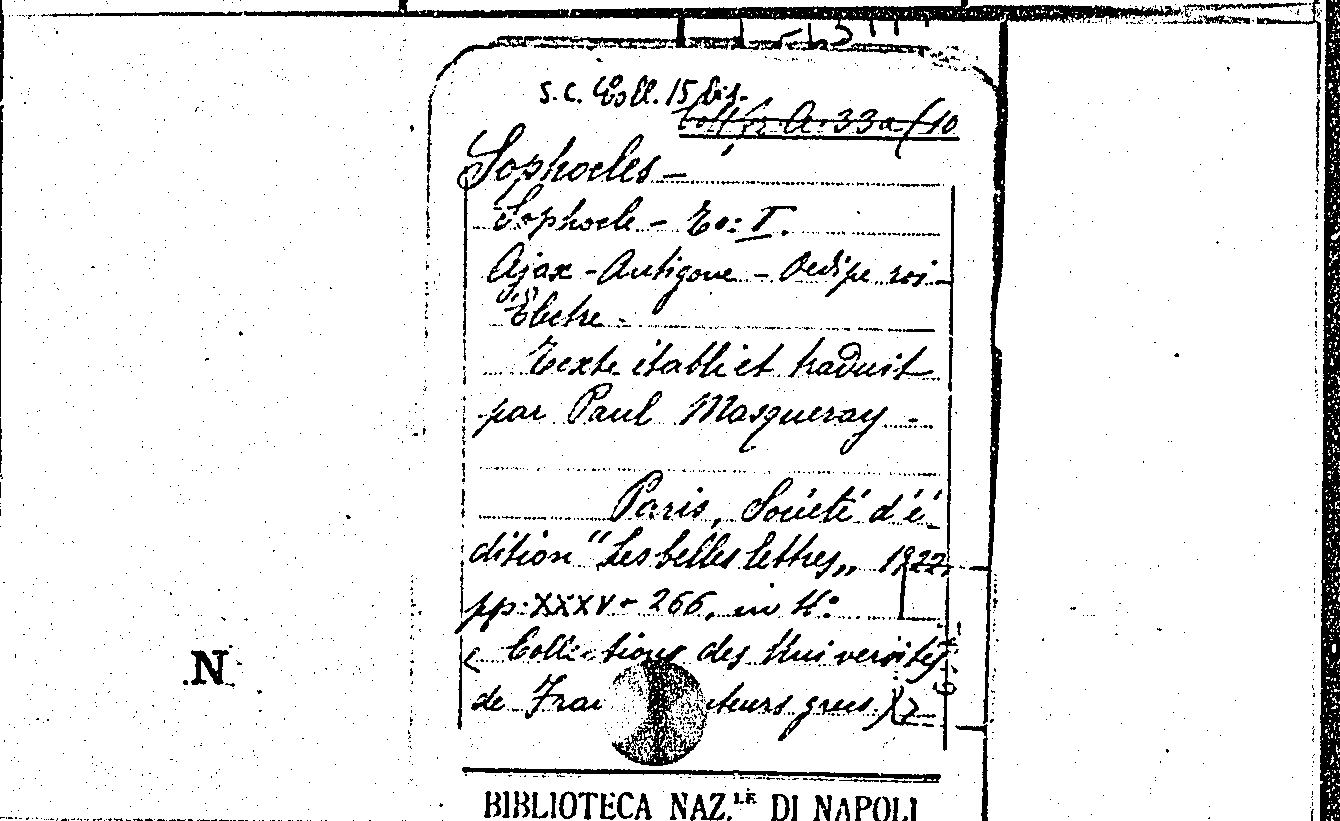 S. C. Coll. 15 bis.
Coll. fr. A. 33a/10
Sophocles –
Sophocle – To: I.
Ajax - Antigone - Oedipe roi -
Électre -
Texte établi et traduit
par Paul Masqueray -
Paris, Société d'é-
dition "Les belles lettres„ 1922,
pp. XXXV - 266, in 4°
( Collections des Universités
de Fran teurs grecs )
N
BIBLIOTECA NAZ.LE DI NAPOLI